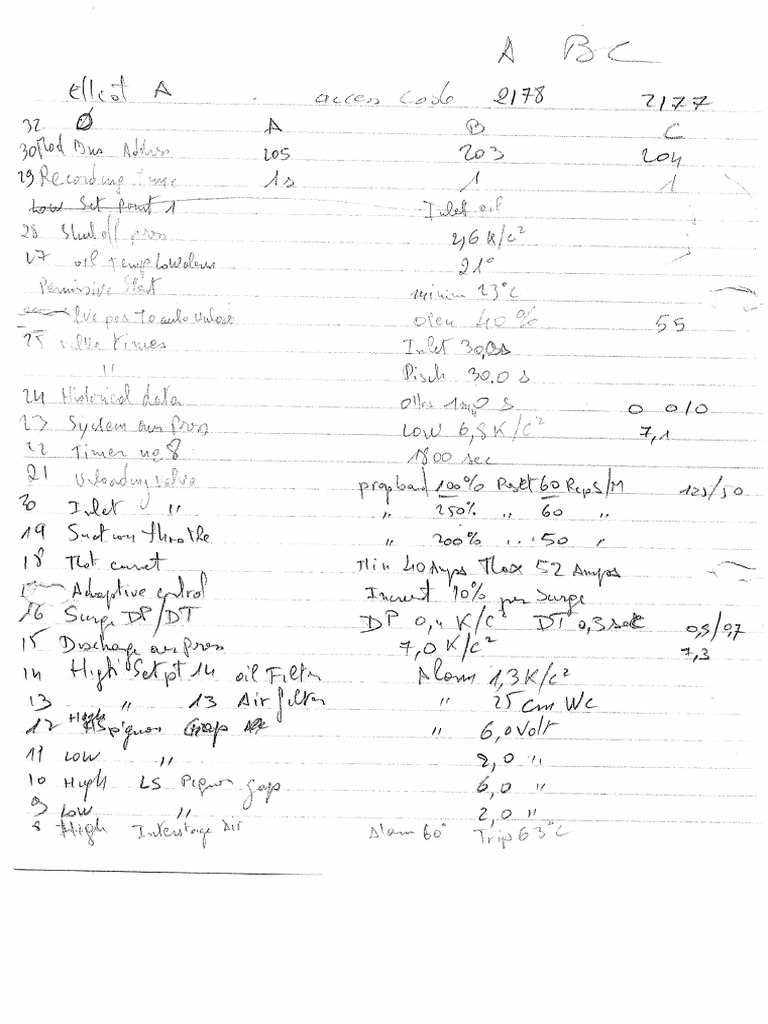 A B C
Elliot A access code 2178 2177
32 Ø A B C
30 Mod Bus Address 205 203 204
29 Recording time 1s 1 1
Low Set Point 1 Inlet oil
28 Shut off pres 2,6 K/c²
27 oil temp low alarm 21°
Permissive Start minimum 23°C
lve pos to auto unload open 40% 55
25 valve times Inlet 30,0s
" Disch 30.0 s
24 Historical data 0 s 0 0/0
23 System air Pres Low 6,8 K/C² 7,1
22 Timer no 8 1800 sec
21 Unloading valve prop band 100% Reset 60 Rep S/M 125/50
20 Inlet " " 250% " 60 "
19 Suction throttle " 200% " 50 "
18 Mot current Min 40 Amps Max 52 Amps
Adaptive control Incremt 10% per Surge
16 Surge DP/DT DP 0,4 K/C² DT 0,3 sec 0,5/0,7
15 Discharge air Pres 7,0 K/c² 7,3
14 High Set pt 14 oil Filter Alarm 1,3 K/c²
13 " 13 Air filter " 25 cm WC
12 High HS pignon Gap " 6,0 Volt
11 Low " 2,0 "
10 High LS Pignon gap 6,0 "
9 Low " 2,0 "
8 High Interstage Air Alarm 60° Trip 63°C